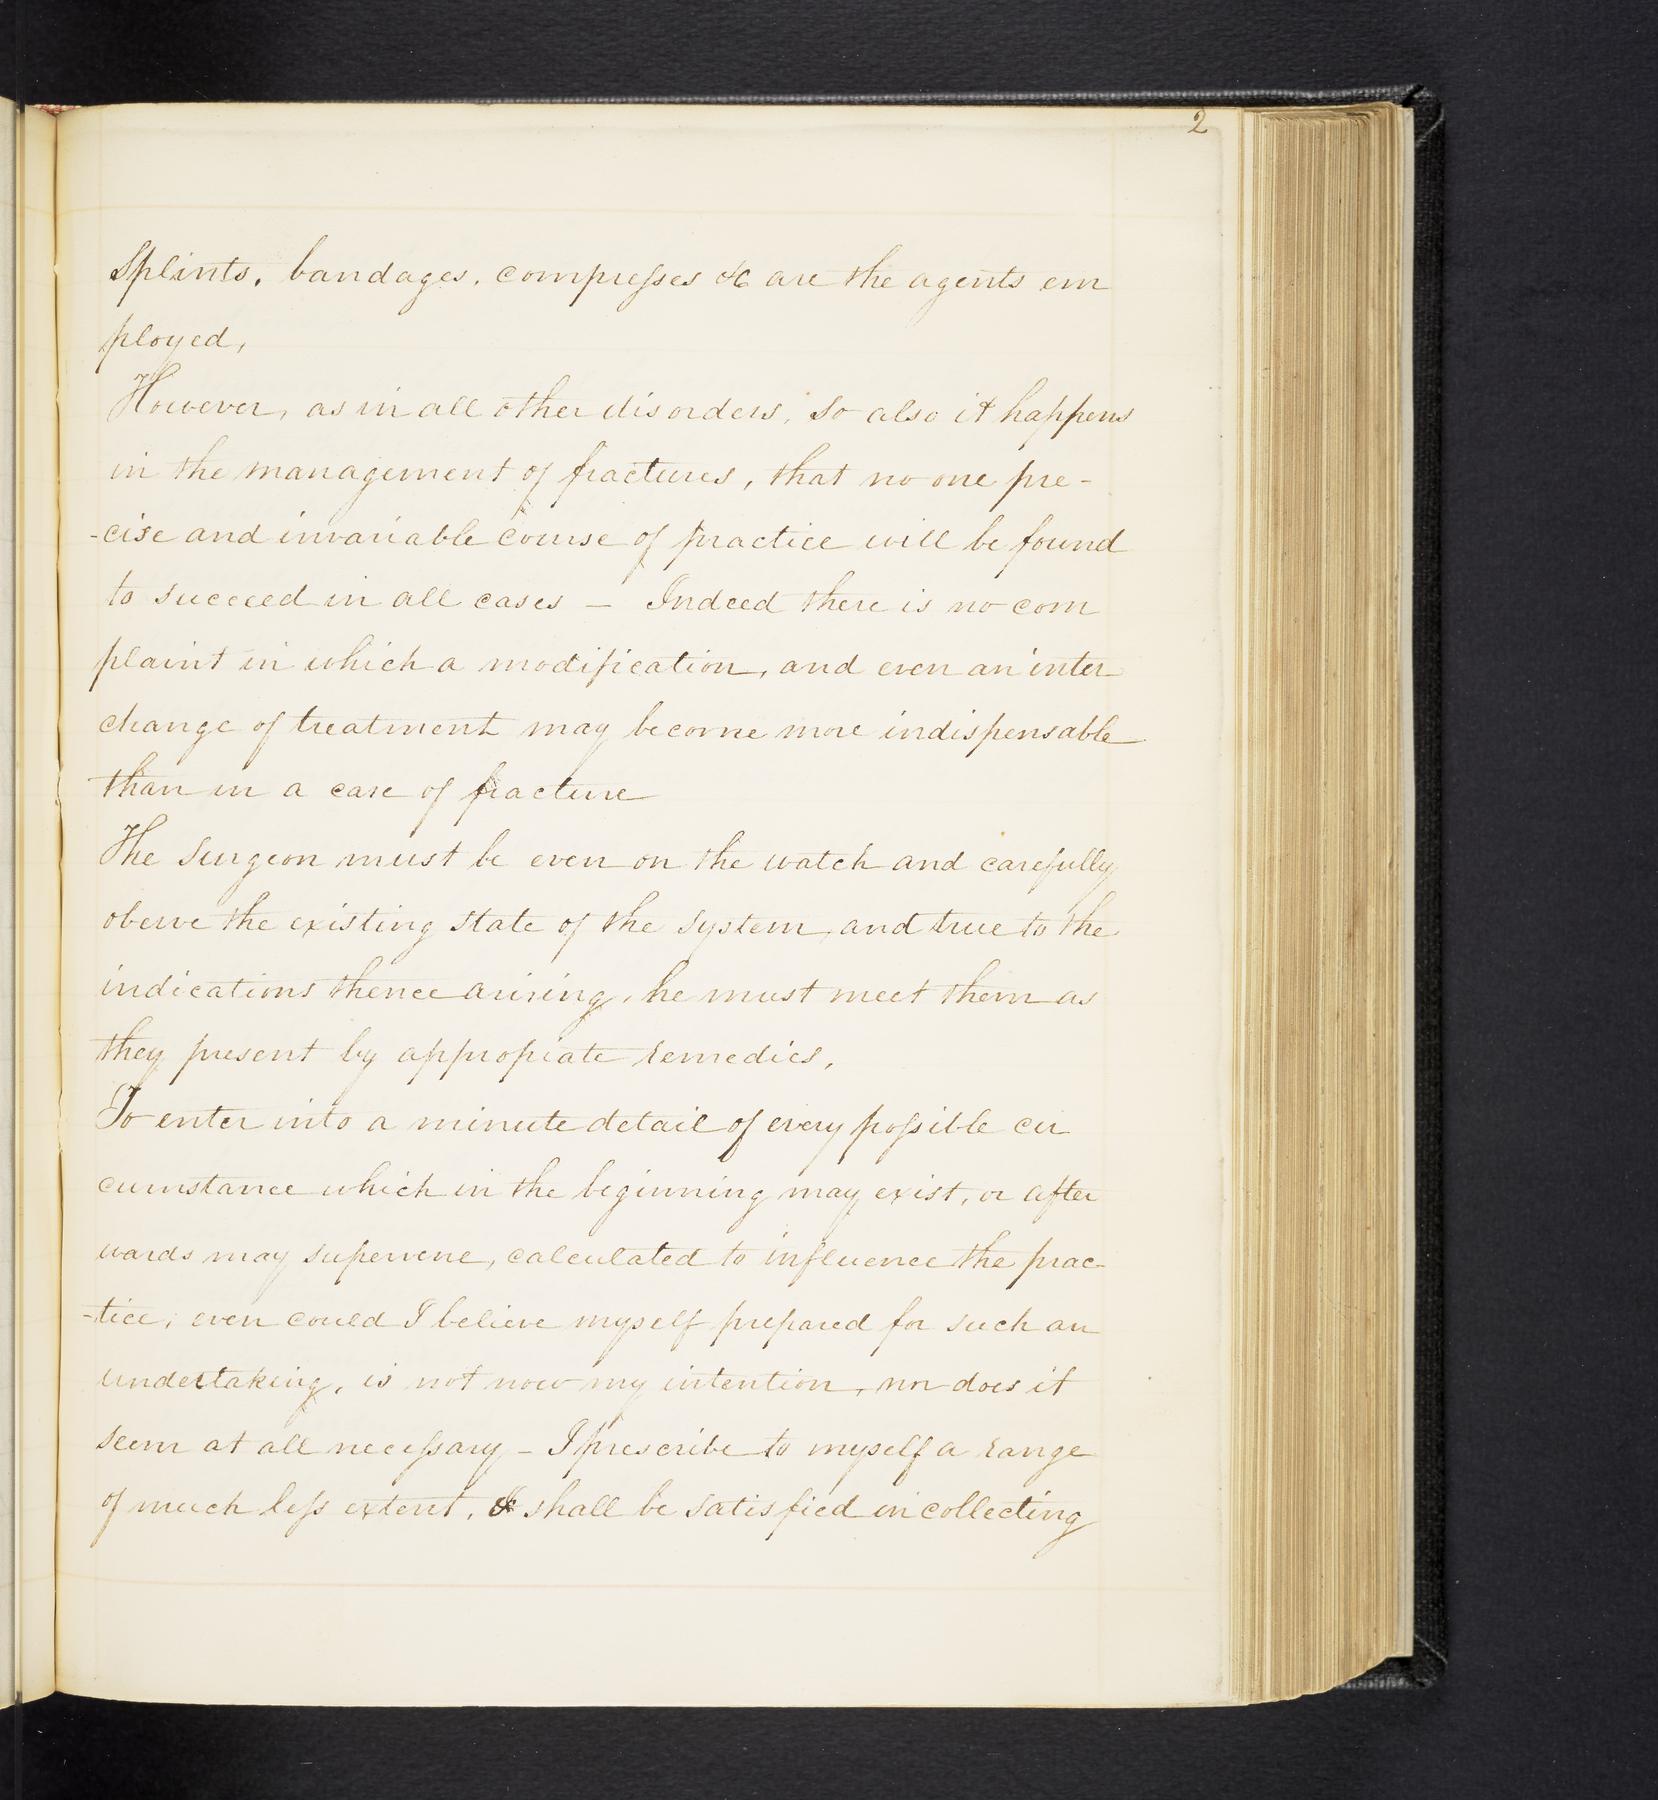 2
Splints, bandages, compresses &c are the agents em
ployed,
However, as in all other disorders, so also it happens
in the management of fractures, that no one pre-
-cise and invariable course of practice will be found
to succeed in all cases — Indeed there is no com
plaint in which a modification, and even an inter
change of treatment may become more indispensable
than in a case of fracture
The Surgeon must be even on the watch and carefully
oberve the existing state of the system, and true to the
indications thence arising, he must meet them as
they present by appropiate remedies,
To enter into a minute detail of every possible cir
cumstance which in the beginning may exist, or after
wards may supervene, calculated to influence the prac-
-tice, even could I believe myself prepared for such an
undertaking, is not now my intention, nor does it
seem at all necessary – I prescribe to myself a range
of much less extent, I shall be satisfied in collecting